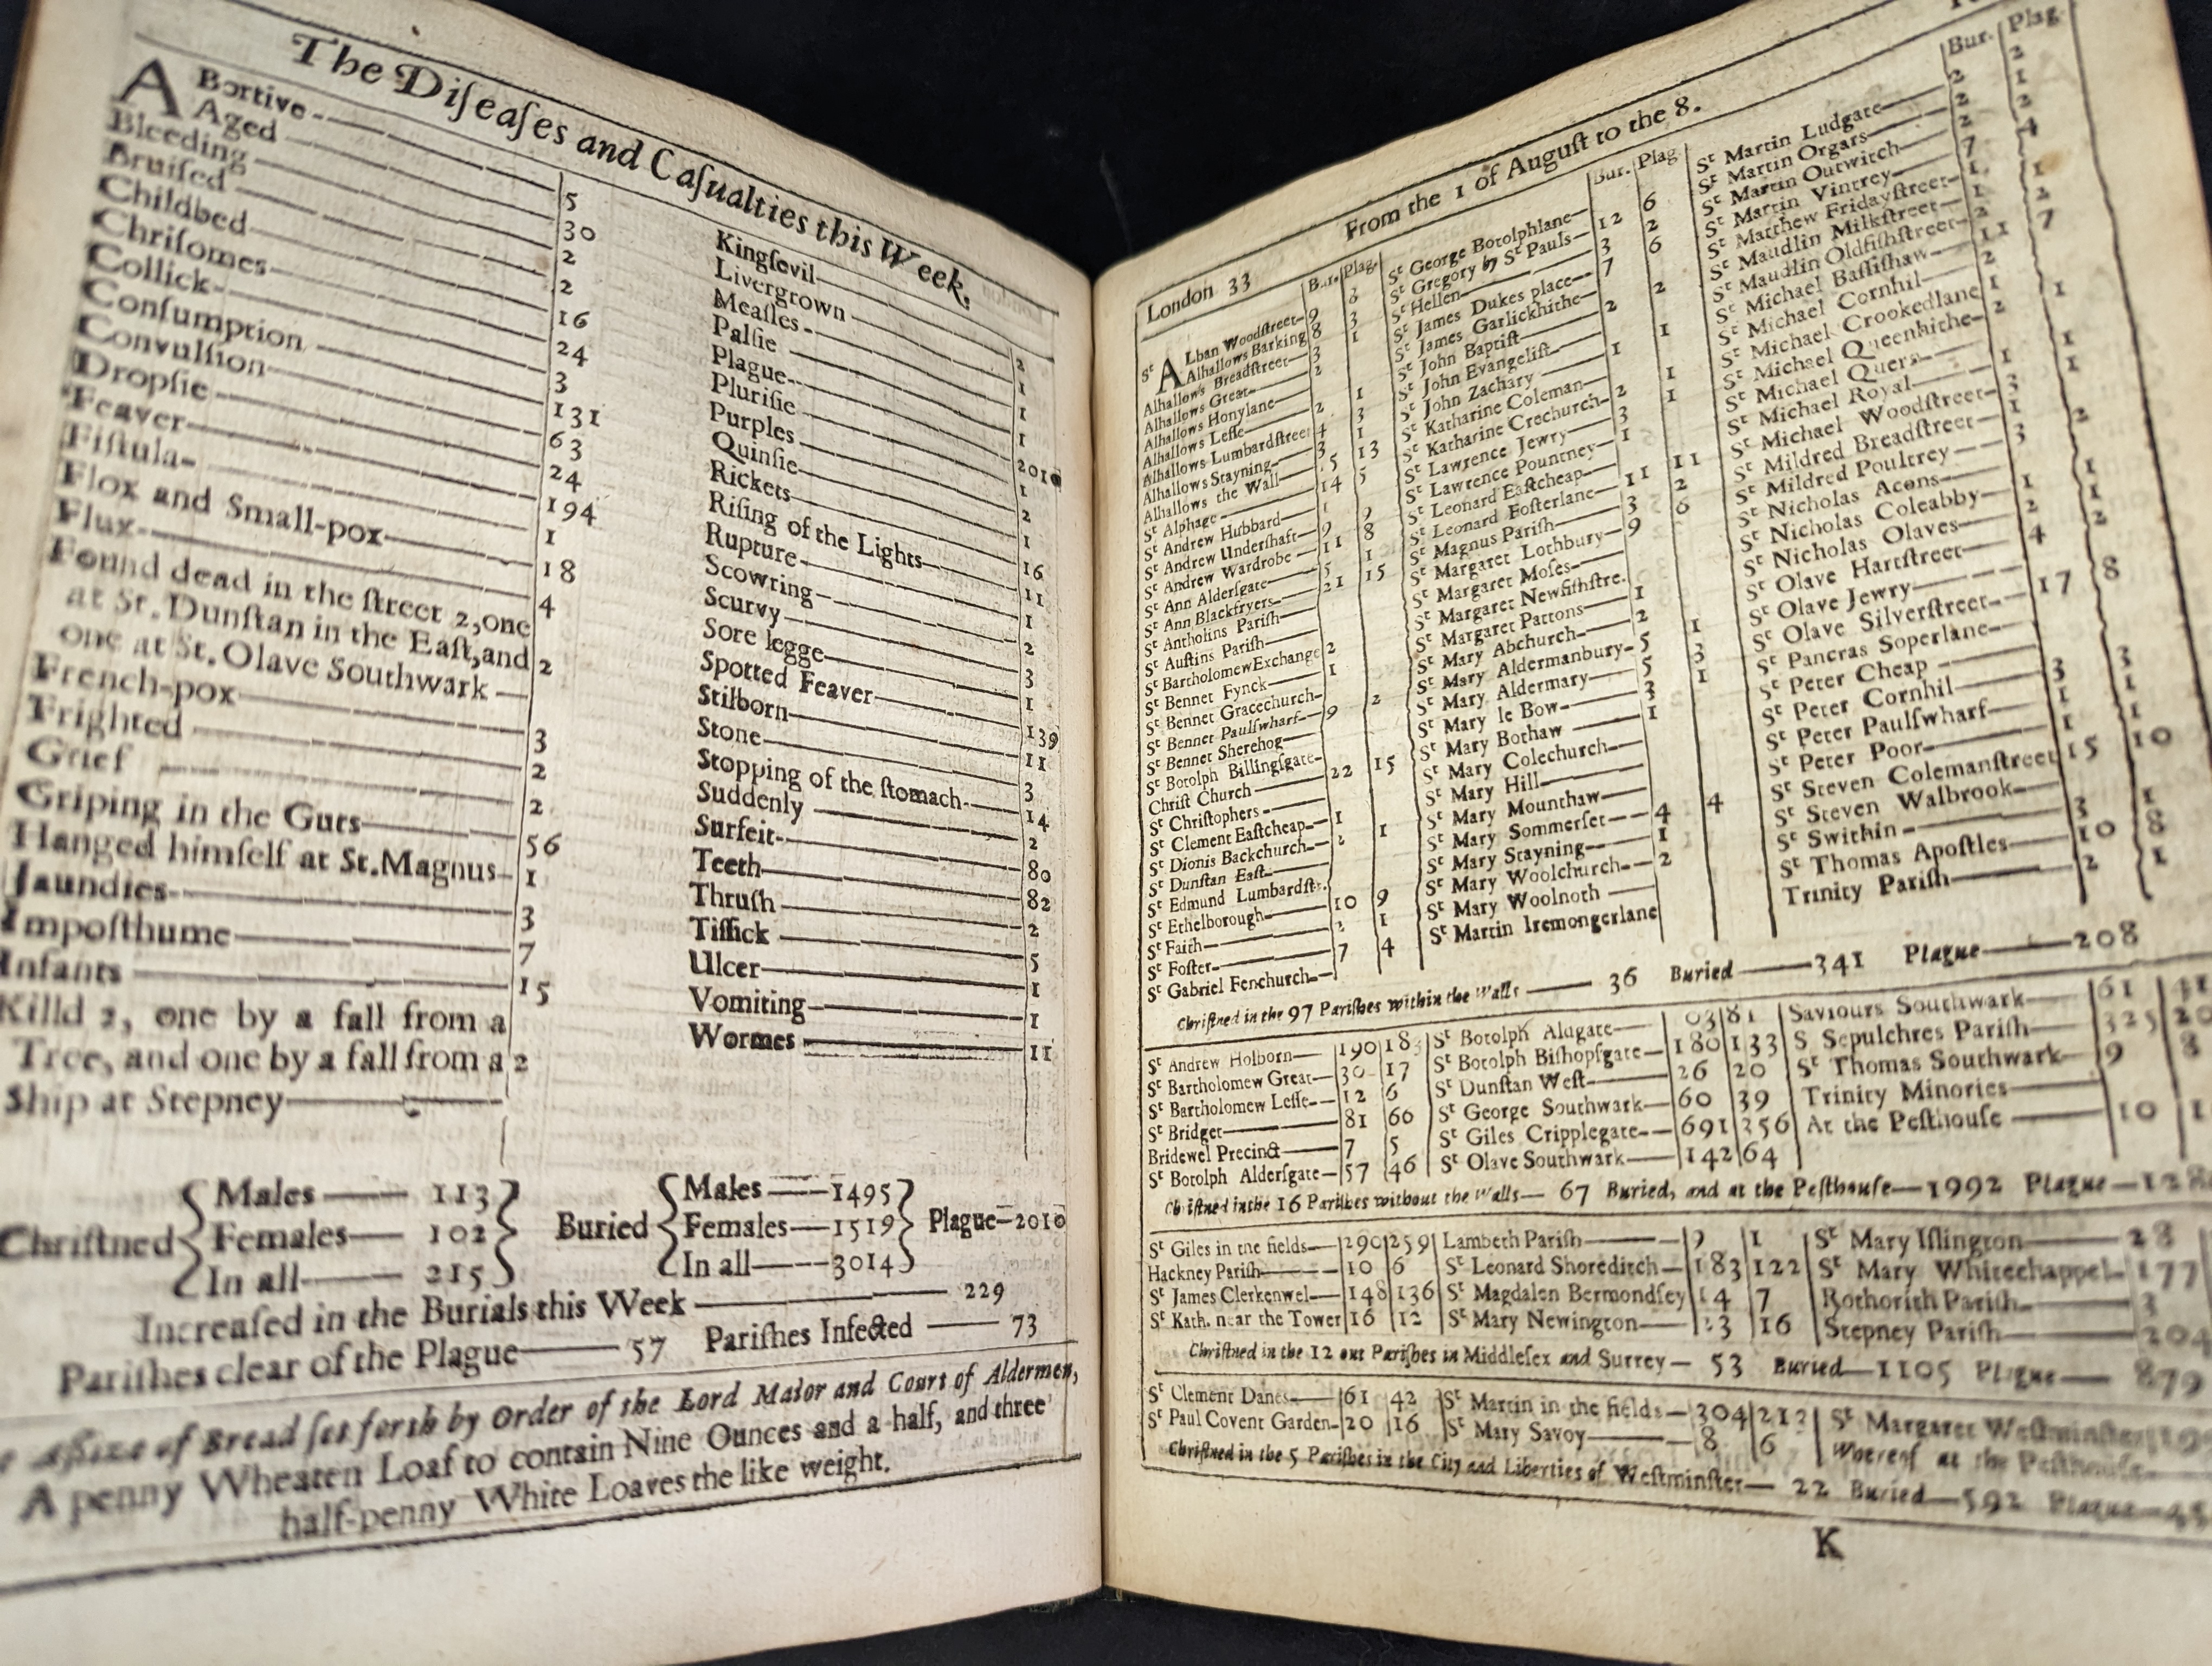 The Diſeaſes and Caſualties this Week.
ABortive 5
Aged 30
Bleeding 2
Bruiſed 2
Childbed 16
Chriſomes 24
Collick 3
Conſumption 131
Convulſion 63
Dropſie 24
Feaver 194
Fiſtula 1
Flox and Small-pox 18
Flux 4
Found dead in the ſtreet 2, one
at St. Dunſtan in the Eaſt, and
one at St. Olave Southwark 2
French-pox 3
Frighted 2
Grief 2
Griping in the Guts 56
Hanged himſelf at St. Magnus 1
Jaundies 3
Impoſthume 7
Infants 15
Killd 2, one by a fall from a
Tree, and one by a fall from a 2
Ship at Stepney
Kingſevil 2
Livergrown 1
Meaſles 1
Palſie 1
Plague 2010
Pluriſie 1
Purples 2
Quinſie 1
Rickets 16
Riſing of the Lights 11
Rupture 1
Scowring 2
Scurvy 3
Sore legge 1
Spotted Feaver 139
Stilborn 11
Stone 3
Stopping of the ſtomach 14
Suddenly 2
Surfeit 80
Teeth 82
Thruſh 2
Tiſſick 5
Ulcer 1
Vomiting 1
Wormes 11
Chriſtned Males 113 Females 102 In all 215
Buried Males 1495 Females 1519 In all 3014
Plague 2010
Increaſed in the Burials this Week 229
Pariſhes clear of the Plague 57 Pariſhes Infected 73
Aſſize of Bread ſet forth by Order of the Lord Maior and Court of Aldermen,
A penny Wheaten Loaf to contain Nine Ounces and a half, and three
half-penny White Loaves the like weight.
London 33 From the 1 of August to the 8.
Bur. Plag.
St ALban Woodſtreet 9
Alhallows Barking 8
Alhallows Breadſtreet 3
Alhallows Great 2
Alhallows Honylane
Alhallows Leſſe 2
Alhallows Lumbardſtreet 4
Alhallows Stayning 3
Alhallows the Wall 5
St Alphage 14
St Andrew Hubbard 1
St Andrew Underſhaft 9
St Andrew Wardrobe 11
St Ann Alderſgate 5
St Ann Blackfryers 21
St Antholins Pariſh
St Auſtins Pariſh
St Bartholomew Exchange 2
St Bennet Fynck 1
St Bennet Gracechurch
St Bennet Paulſwharf 9
St Bennet Sherehog
St Botolph Billingſgate
Chriſt Church 22
St Chriſtophers
St Clement Eaſtcheap 1
St Dionis Backchurch
St Dunſtan Eaſt
St Edmund Lumbardſtr.
St Ethelborough 10
St Faith
St Foſter 7
St Gabriel Fenchurch
Bur. Plag
St George Botolphlane
St Gregory by St Pauls 12
St Hellen 3
St James Dukes place 7
St James Garlickhithe
St John Baptiſt
St John Evangeliſt
St John Zachary
St Katharine Coleman
St Katharine Crechurch
St Lawrence Jewry
St Lawrence Pountney
St Leonard Eaſtcheap
St Leonard Foſterlane 11
St Magnus Pariſh 3
St Margaret Lothbury 9
St Margaret Moſes
St Margaret Newfiſhſtre.
St Margaret Pattons 1
St Mary Abchurch 2
St Mary Aldermanbury 5
St Mary Aldermary 5
St Mary le Bow 3
St Mary Bothaw 1
St Mary Colechurch
St Mary Hill
St Mary Mounthaw
St Mary Sommerſet 4
St Mary Stayning 1
St Mary Woolchurch 2
St Mary Woolnoth
St Martin Iremongerlane
Bur. Plag
St Martin Ludgate
St Martin Orgars
St Martin Outwitch
St Martin Vintrey
St Matthew Fridayſtreet
St Maudlin Milkſtreet
St Maudlin Oldfiſhſtreet
St Michael Baſſiſhaw
St Michael Cornhil
St Michael Crookedlane
St Michael Queenhithe
St Michael Quern
St Michael Royal
St Michael Woodſtreet
St Mildred Breadſtreet
St Mildred Poultrey
St Nicholas Acons
St Nicholas Coleabby
St Nicholas Olaves
St Olave Hartſtreet
St Olave Jewry
St Olave Silverſtreet 17 8
St Pancras Soperlane
St Peter Cheap
St Peter Cornhil
St Peter Paulſwharf
St Peter Poor
St Steven Colemanſtreet 15 10
St Steven Walbrook
St Swithin
St Thomas Apoſtles 10 8
Trinity Pariſh 2 1
Chriſtned in the 97 Pariſhes within the Walls 36 Buried 341 Plague 208
St Andrew Holborn 190
St Bartholomew Great 30 17
St Bartholomew Leſſe 12 6
St Bridget 81 60
Bridewel Precinct 7 5
St Botolph Alderſgate 57 46
St Botolph Aldgate
St Botolph Biſhopſgate 180 133
St Dunſtan Weſt 26 20
St George Southwark 60 39
St Giles Cripplegate 691 356
St Olave Southwark 142 64
Saviours Southwark 61 41
S Sepulchres Pariſh 325
St Thomas Southwark 9 8
Trinity Minories
At the Peſthouſe 10
Chriſtned in the 16 Pariſhes without the Walls 67 Buried, and at the Peſthouſe 1992 Plague
St Giles in the fields 290 259
Hackney Pariſh 10 6
St James Clerkenwel 148 136
St Kath. near the Tower 16 12
Lambeth Pariſh
St Leonard Shoreditch 183 122
St Magdalen Bermondſey 14 7
St Mary Newington 23 16
St Mary Iſlington
St Mary Whitechappel 177
Rothorith Pariſh 3
Stepney Pariſh 204
Chriſtned in the 12 out Pariſhes in Middleſex and Surrey 53 Buried 1105 Plague 879
St Clement Danes 61 42
St Paul Covent Garden 20 16
St Martin in the fields 304 212
St Mary Savoy 8 6
St Margaret Weſtminſter
Whereof at the Peſthouſe
Chriſtned in the 5 Pariſhes in the City and Liberties of Weſtminſter 22 Buried 592 Plague
K